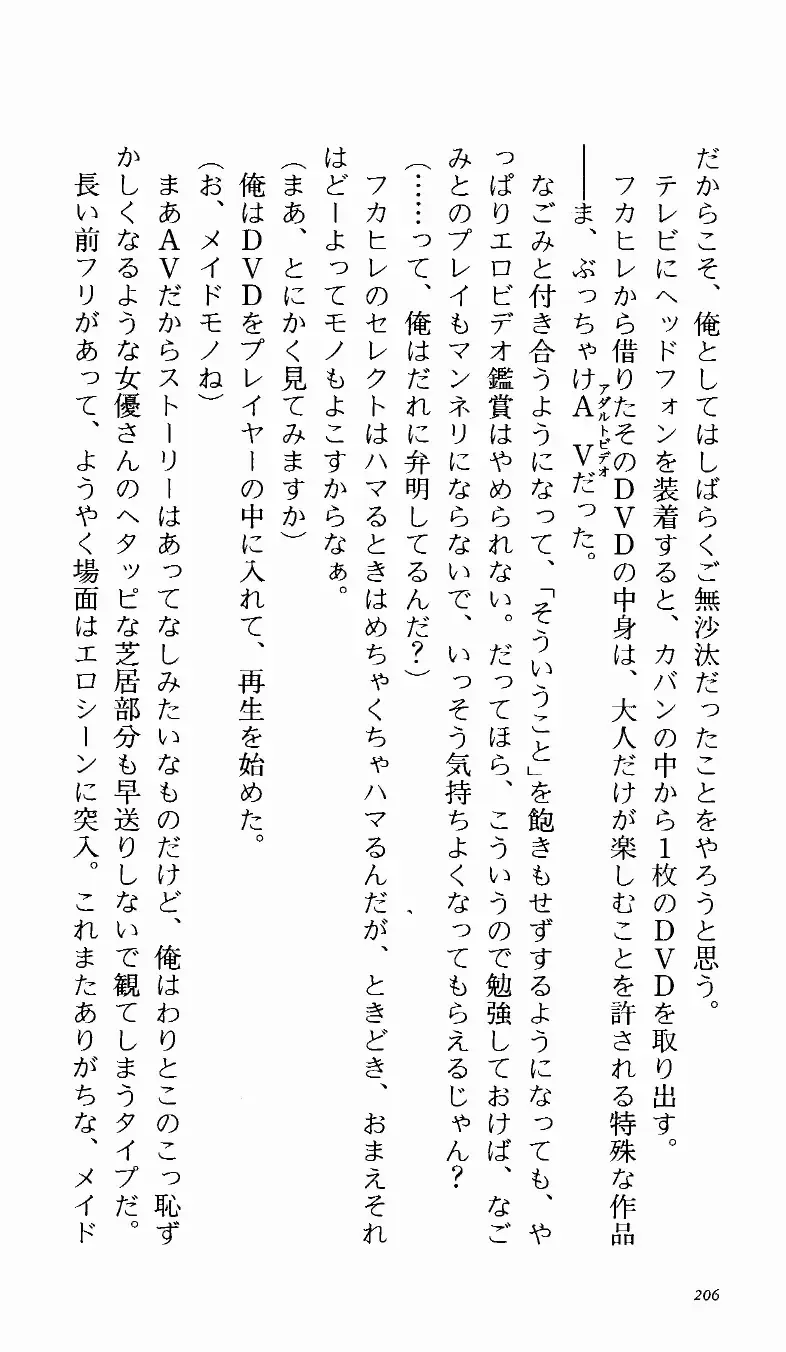 だからこそ、俺としてはしばらくご無沙汰だったことをやろうと思う。
テレビにヘッドフォンを装着すると、カバンの中から1枚のDVDを取り出す。
フカヒレから借りたそのDVDの中身は、大人だけが楽しむことを許される特殊な作品
――ま、ぶっちゃけAVだった。
アダルトビデオ
なごみと付き合うようになって、「そういうこと」を飽きもせずするようになっても、や
っぱりエロビデオ鑑賞はやめられない。だってほら、こういうので勉強しておけば、なご
みとのプレイもマンネリにならないで、いっそう気持ちよくなってもらえるじゃん?
(……って、俺はだれに弁明してるんだ?)
フカヒレのセレクトはハマるときはめちゃくちゃハマるんだが、ときどき、おまえそれ
はどーよってモノもよこすからなぁ。
(まあ、とにかく見てみますか)
俺はDVDをプレイヤーの中に入れて、再生を始めた。
(お、メイドモノね)
まあAVだからストーリーはあってなしみたいなものだけど、俺はわりとこのこっ恥ず
かしくなるような女優さんのヘタッピな芝居部分も早送りしないで観てしまうタイプだ。
長い前フリがあって、ようやく場面はエロシーンに突入。これまたありがちな、メイド
206